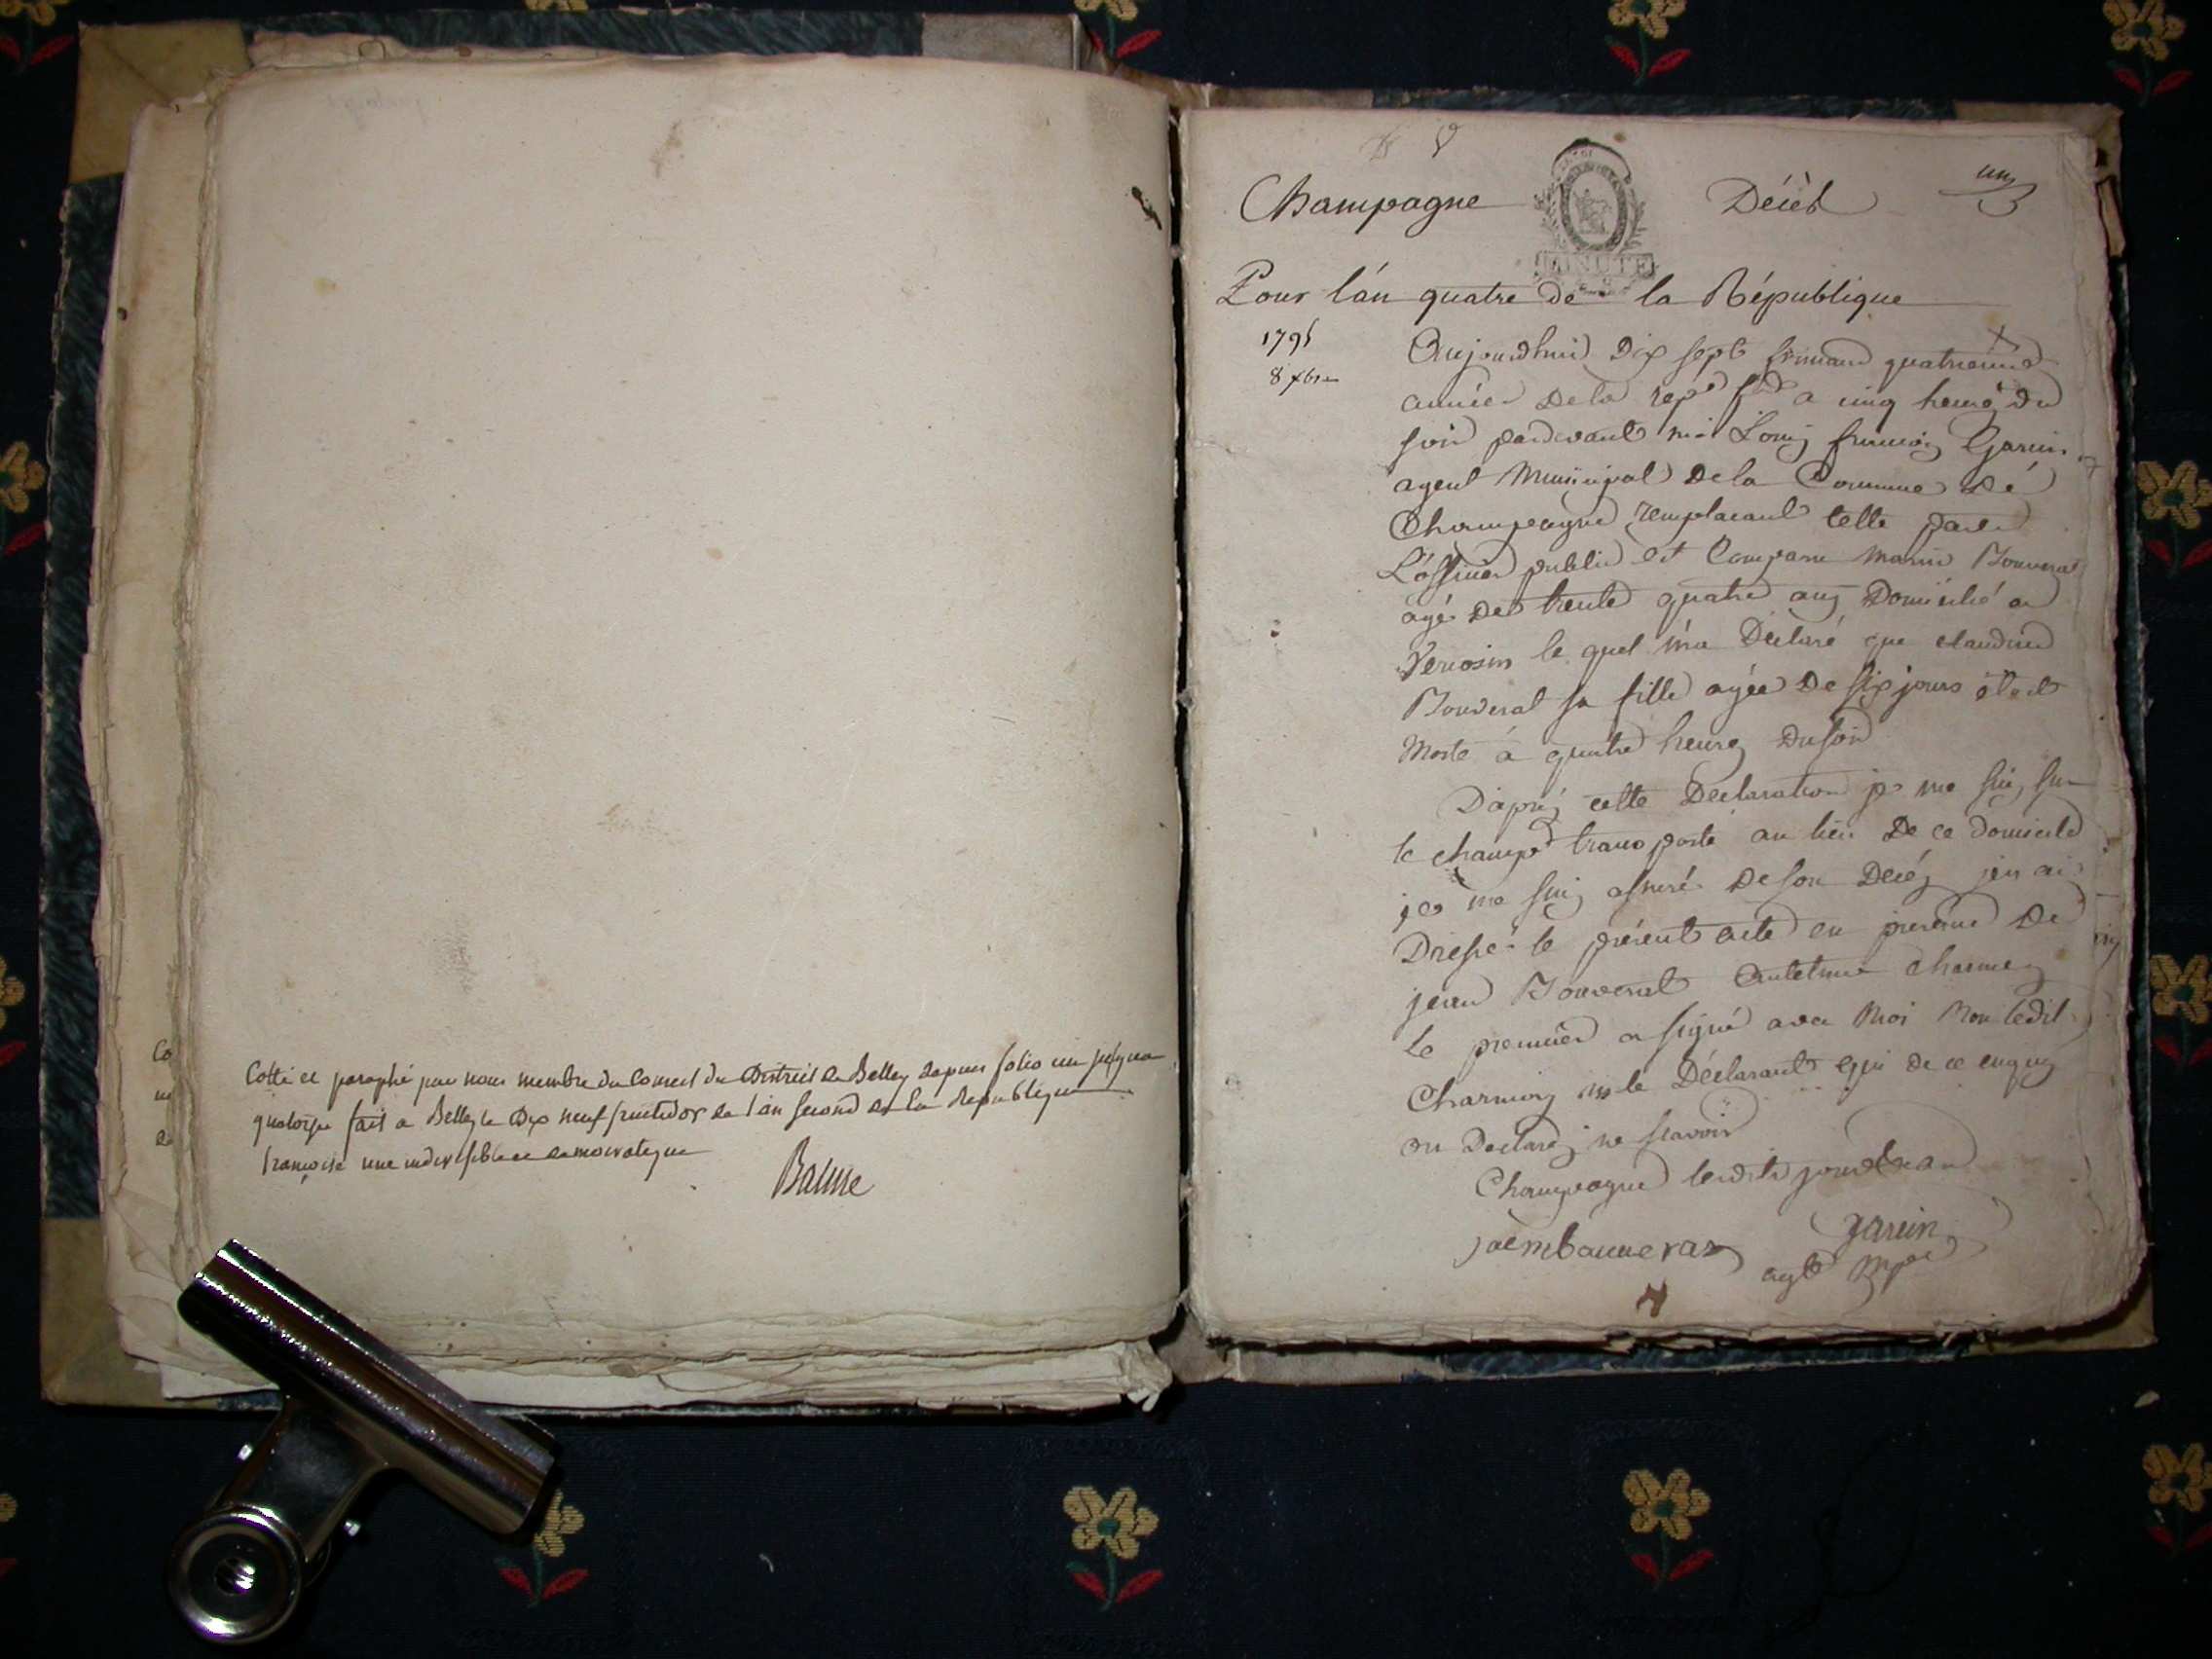 Cotté et paraphé par nous membre du Conseil du District de Belley depuis folio un jusqua
quatorze fait a Belley le Dix neuf fructidor de lan second de la Republique
françoise une indivisible et democratique
Balme
un
Champagne Décès
MINUTE
Pour l'án quatre de la République
1795
8 xbre
Aujourdhuid Dix sept frimaire quatrieme
année de la rep fse a cinq heures du
soir pardevant moi Louis Garin
agent Municipal De la Commune Dé
Champagne remplacant cette partie
L'officier public est Comparu Marin Bouverat
agé de trente quatre ans Domicilié a
le quel m'a Declaré que claudine
Bouverat sa fille agée De six jours étoit
Morte à quatre heures du soir
D'aprés cette Declaration je me suis sur
le champ transporté au lieu De ce domicile
je me suis assuré De son Decés j'en ai
Dressé le présent acte en presence De
jean Bouverat Antelme Charmes
Le premier a signé avec Moi Non ledit
Charmoz le Déclarant qui de ce enquis
on Declarés ne scavoir
Champagne lesdits jour et an
garin
agt mpal